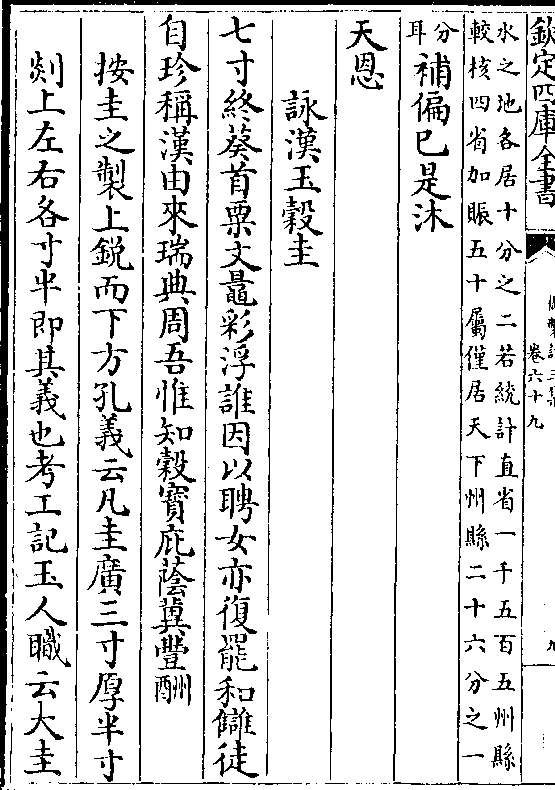 欽定四庫全書
卷六十九
水之地各居十分之二若統計直省一千五百五州縣
較核四省加賑五十屬僅居天下州縣二十六分之一
分
耳
補偏已是沐
天恩
詠漢玉穀圭
七寸終葵首粟文鼂彩浮誰因以聘女亦復罷和讎徒
自珍稱漢由來瑞典周吾惟知穀寶庇蔭冀豐酬
按圭之製上銳而下方孔義云凡圭廣三寸厚半寸
剡上左右各寸半即其義也考工記玉人職云大圭